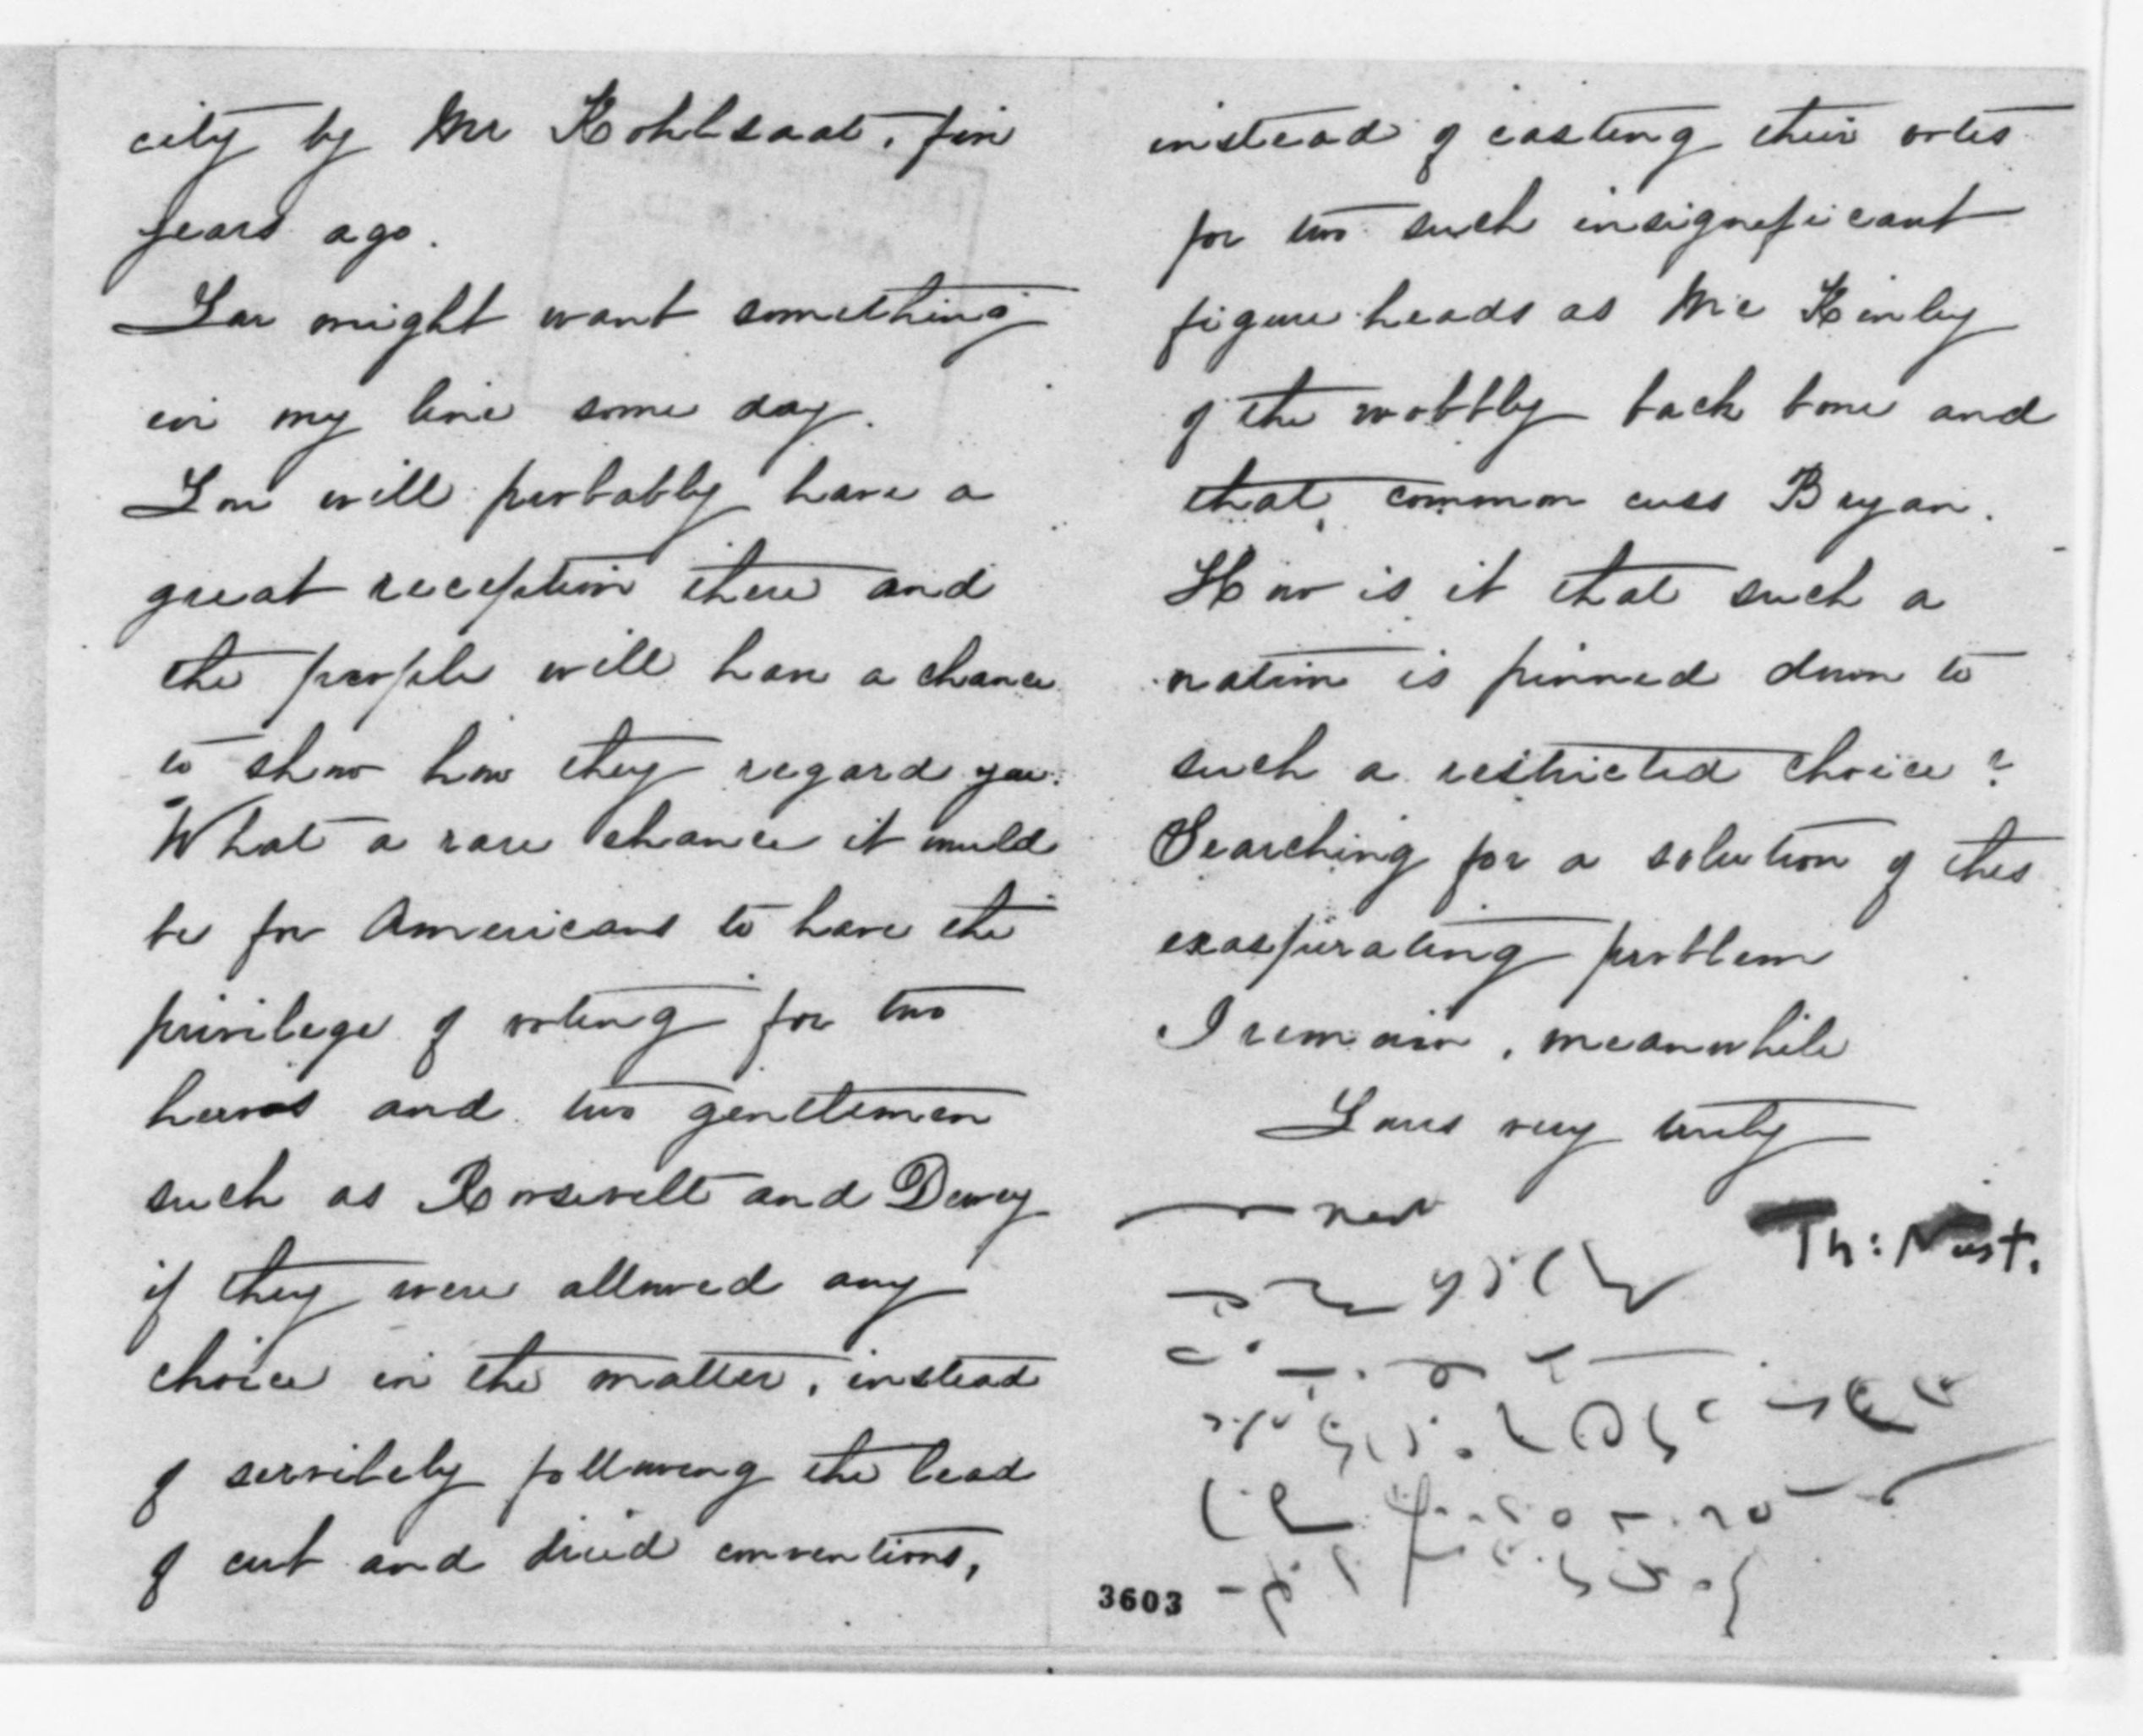 city by Mr Kohlsaat, five
years ago.
You might want something
in my line some day.
You will probably have a
great reception there and
the people will have a chance
to show how they regard you.
What a rare chance it would
be for Americans to have the
privilege of voting for two
heroes and two gentlemen
such as Roosevelt and Dewey
if they were allowed any
choice in the matter, instead
of servilely following the lead
of cut and dried conventions,
instead of casting their votes
for two such insignificant
figure heads as Mc Kinley
of the wobbly back bone and
that common cuss Bryan.
How is it that such a
nation is pinned down to
such a restricted choice?
Searching for a solution of this
exasperating problem
I remain, meanwhile
Yours very truly
Th: Nast.
3603